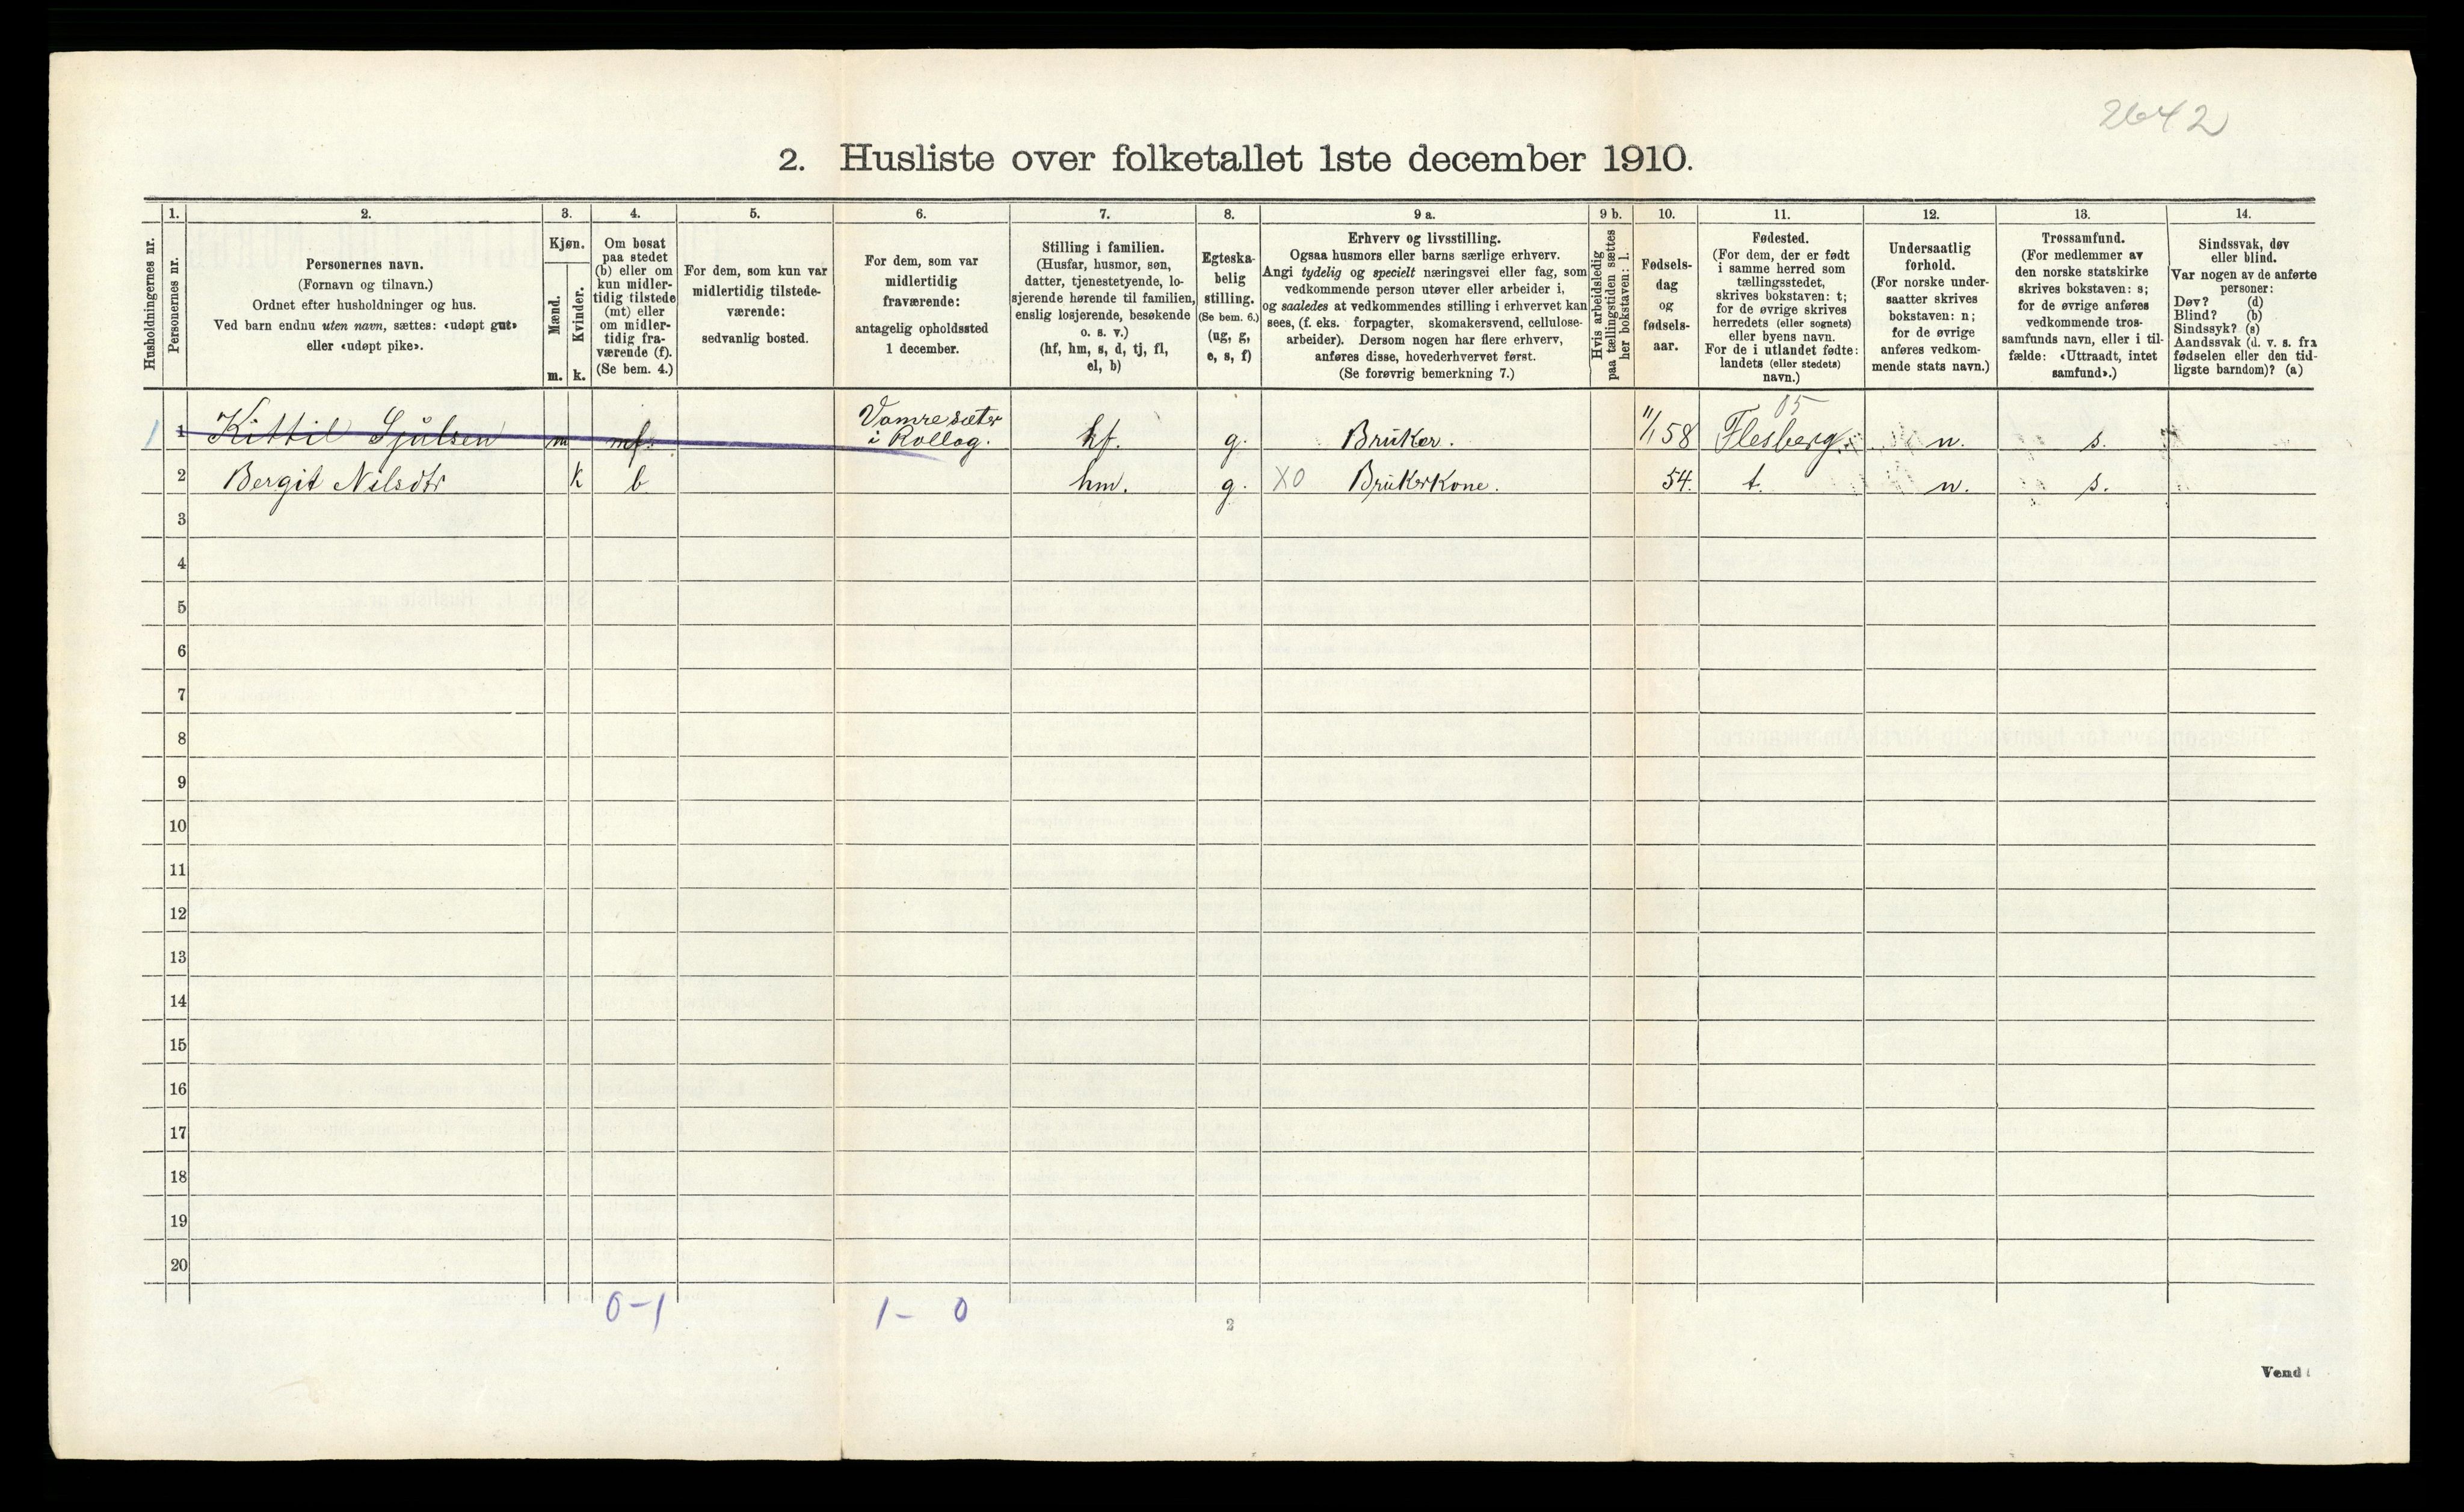 2642
2. Husliste over folketallet 1ste december 1910.
Husholdningernes nr.
1.
Personernes nr.
2.
Personernes navn.
(Fornavn og tilnavn.)
Ordnet efter husholdninger og hus.
Ved barn endnu uten navn, sættes: «udøpt gut»
eller «udøpt pike».
3.
Kjøn.
Mænd.
Kvinder.
m.
k.
4.
Om bosat
paa stedet
(b) eller om
kun midler-
tidig tilstede
(mt) eller
om midler-
tidig fra-
værende (f).
(Se bem. 4.)
5.
For dem, som kun var
midlertidig tilstede-
værende:
sedvanlig bosted.
6.
For dem, som var
midlertidig
fraværende:
antagelig opholdssted
1 december.
7.
Stilling i familien.
(Husfar, husmor, søn,
datter, tjenestetyende, lo-
sjerende hørende til familien,
enslig losjerende, besøkende
o. s. v.)
(hf, hm, s, d, tj, fl,
el, b)
8.
Egteska-
belig
stilling.
(Se bem. 6.)
(ug, g,
e, s, f)
9 a.
Erhverv og livsstilling.
Ogsaa husmors eller barns særlige erhverv.
Angi tydelig og specielt næringsvei eller fag, som
vedkommende person utøver eller arbeider i,
og saaledes at vedkommendes stilling i erhvervet kan
sees, (f. eks. forpagter, skomakersvend, cellulose-
arbeider). Dersom nogen har flere erhverv,
anføres disse, hovederhvervet først.
(Se forøvrig bemerkning 7.)
9 b.
Hvis arbeidsledig
paa tællingstiden sættes
her bokstaven: l.
10.
Fødsels-
dag
og
fødsels-
aar.
11.
Fødested.
(For dem, der er født
i samme herred som
tællingsstedet,
skrives bokstaven: t;
for de øvrige skrives
herredets (eller sognets)
eller byens navn.
For de i utlandet fødte:
landets (eller stedets)
navn.)
12.
Undersaatlig
forhold.
(For norske under-
saatter skrives
bokstaven: n;
for de øvrige
anføres vedkom-
mende stats navn.)
13.
Trossamfund.
(For medlemmer av
den norske statskirke
skrives bokstaven: s;
for de øvrige anføres
vedkommende tros-
samfunds navn, eller i til-
fælde: «Uttraadt, intet
samfund».)
14.
Sindssvak, døv
eller blind.
Var nogen av de anførte
personer:
Døv? (d)
Blind? (b)
Sindssyk? (s)
Aandssvak (d. v. s. fra
fødselen eller den tid-
ligste barndom)? (a)
Vamresæter 05
1 1 Kittil Sjulsen m mf. i Rollag. hf. g. Bruker. 11/1 58 Flesberg. n. s.
2 Bergit Nilsdtr k b hm. g. XO Brukerkone. 54. t. n. s.
3
4
5
6
7
8
9
10
11
12
13
14
15
16
17
18
19
20
0-1 1- 0
2
Vend